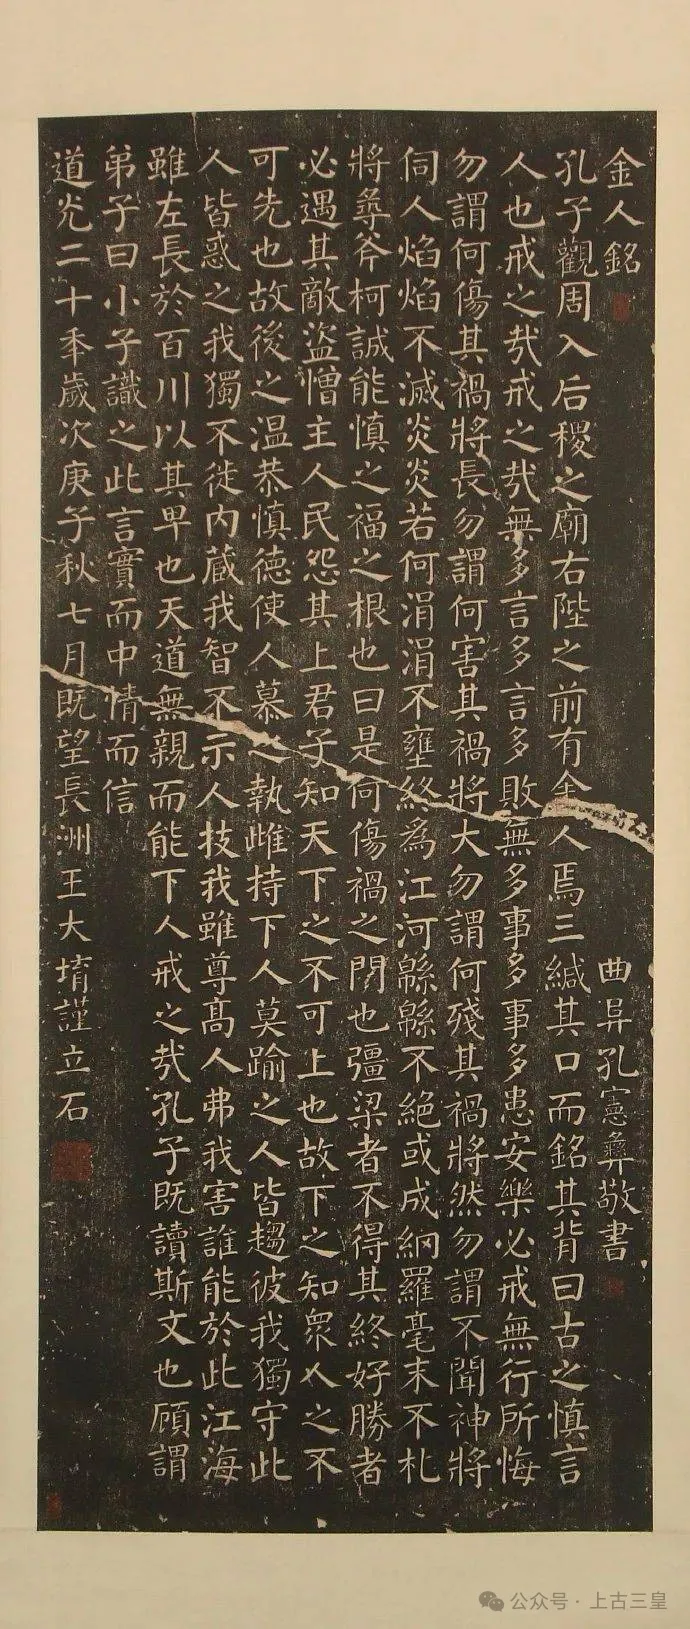 金人銘
曲阜孔憲彝敬書
孔子觀周入后稷之廟右陛之前有金人焉三緘其口而銘其背曰古之慎言
人也戒之㢤戒之㢤無多言多言多敗無多事多事多患安樂必戒無行所悔
勿謂何傷其禍將長勿謂何害其禍將大勿謂何殘其禍將然勿謂不聞神將
伺人焰焰不滅炎炎若何涓涓不壅終為江河緜緜不絕或成網羅毫末不札
將尋斧柯誠能慎之福之根也曰是何傷禍之門也彊梁者不得其終好勝者
必遇其敵盜憎主人民怨其上君子知天下之不可上也故下之知眾人之不
可先也故後之溫恭慎德使人慕之執雌持下人莫踰之人皆趨彼我獨守此
人皆惑之我獨不徙內藏我智不示人技我雖尊高人弗我害誰能於此江海
雖左長於百川以其卑也天道無親而能下人戒之㢤孔子既讀斯文也顧謂
弟子曰小子識之此言實而中情而信
道光二十年歲次庚子秋七月既望長洲王大堉謹立石
公众号·上古三皇